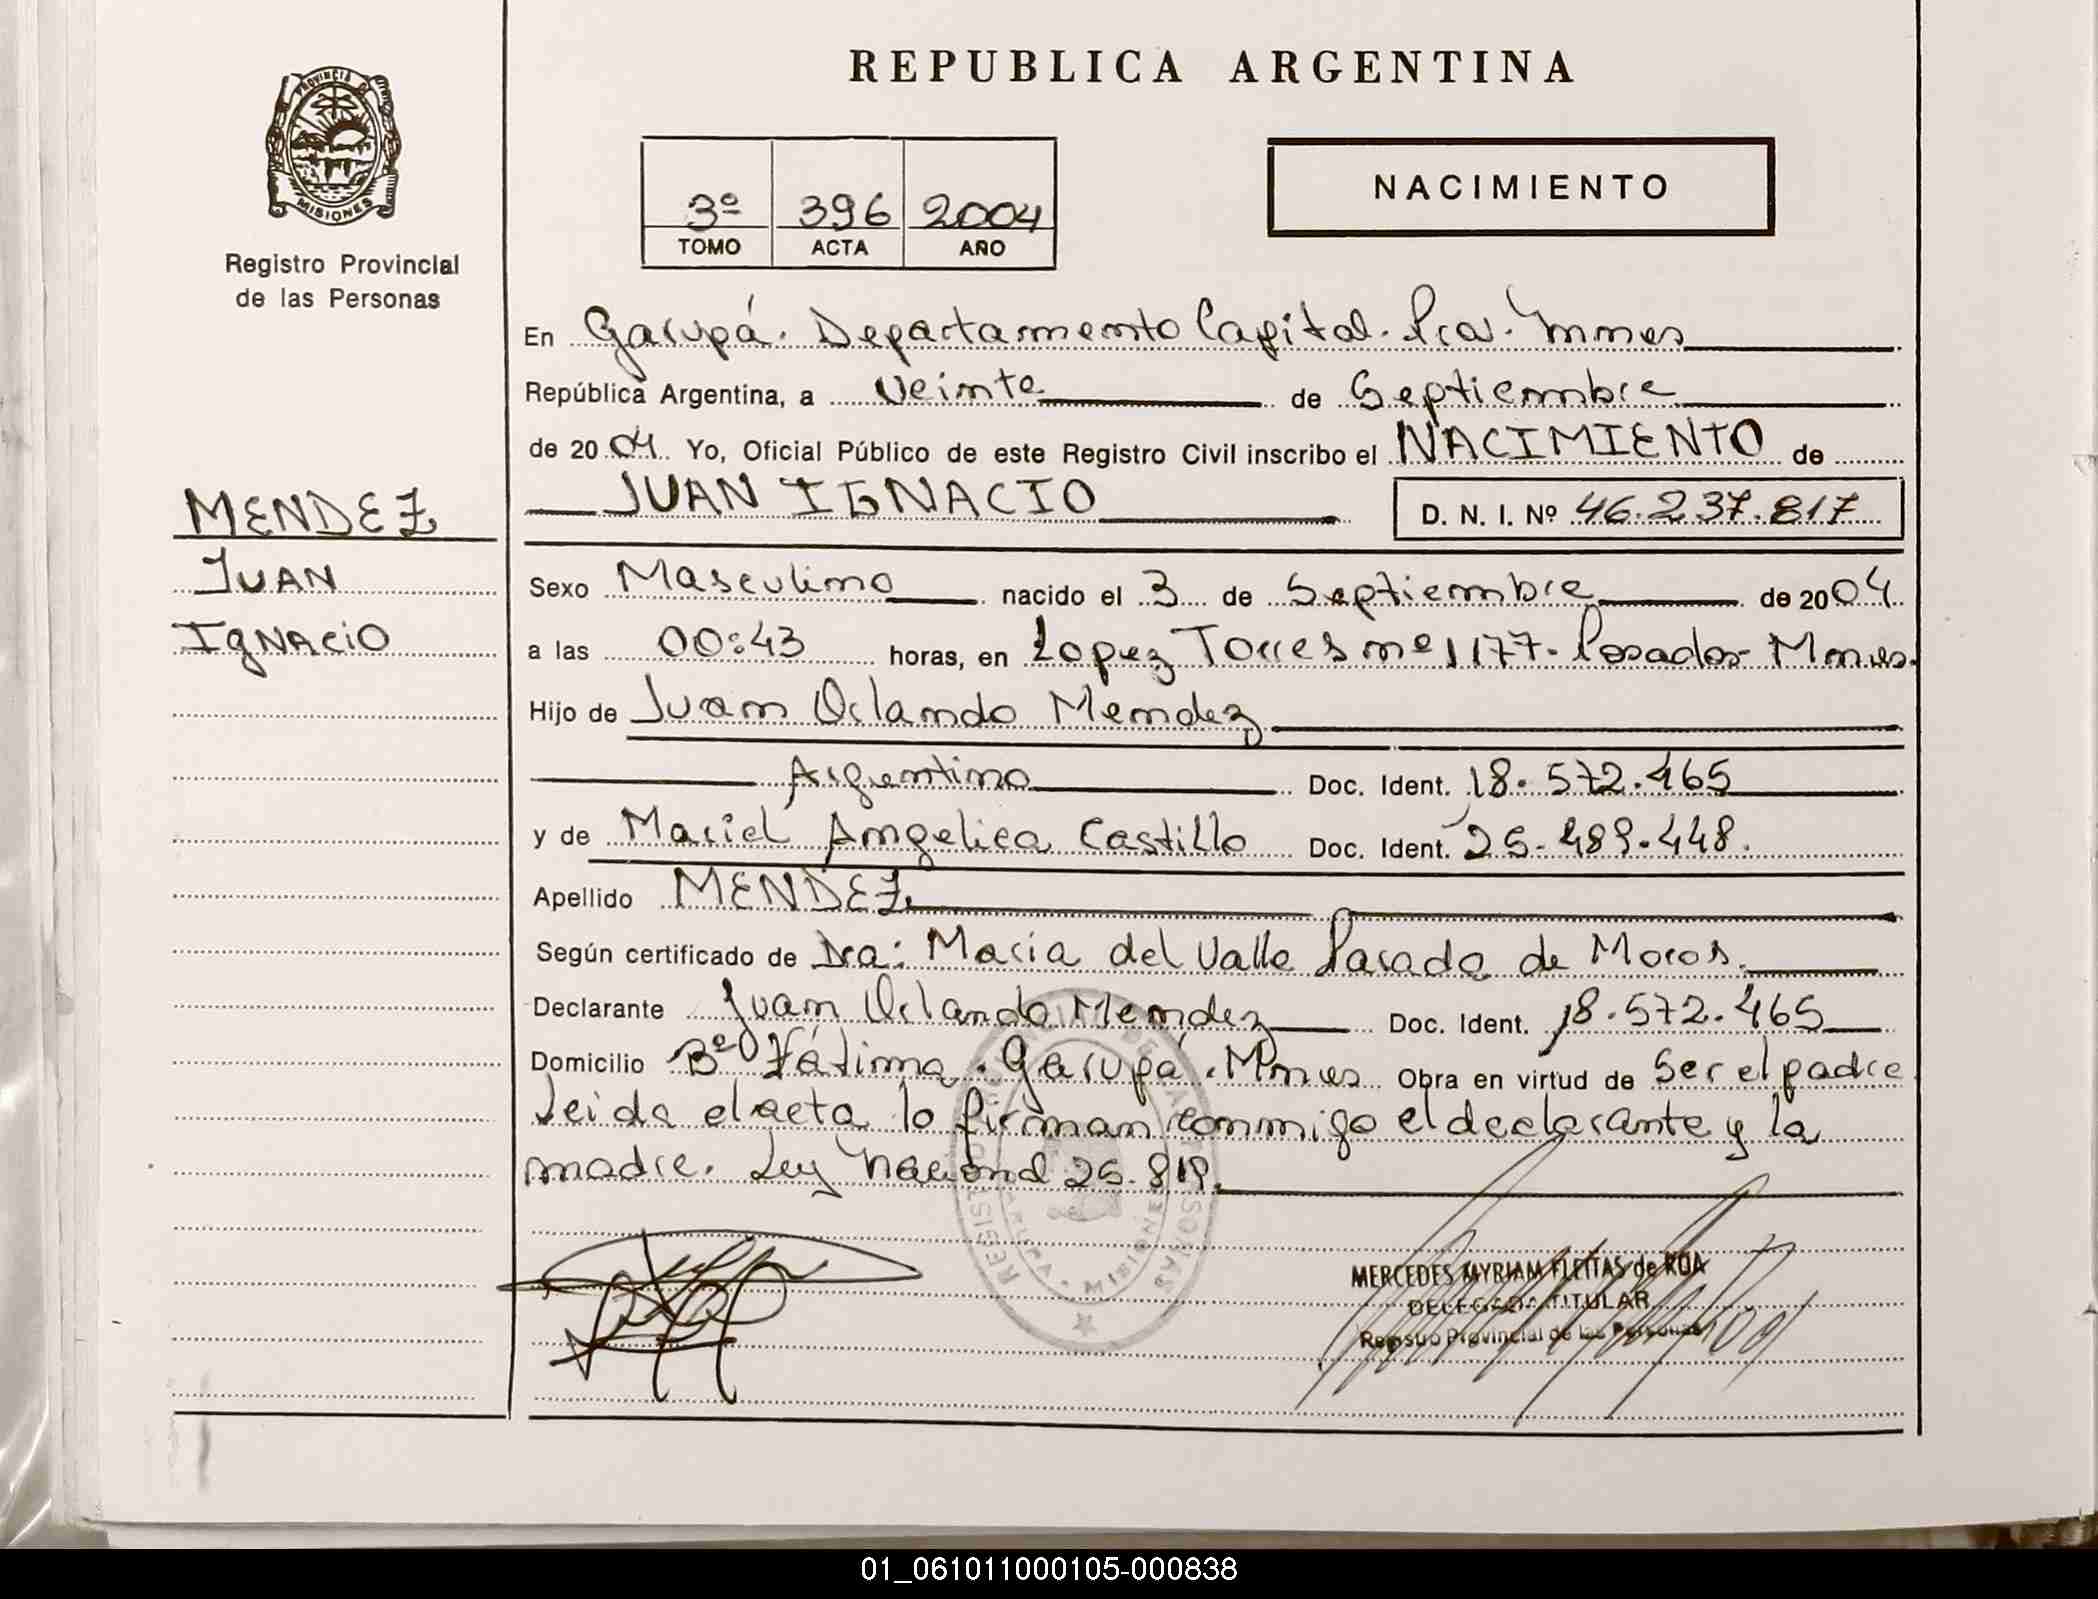 REPUBLICA ARGENTINA
PROVINCIA DE
MISIONES
Registro Provincial
de las Personas
3º 396 2004
TOMO ACTA AÑO
NACIMIENTO
En Garupá. Departamento Capital. Pcia. Mnes
República Argentina, a veinte de Septiembre
de 2004. Yo, Oficial Público de este Registro Civil inscribo el NACIMIENTO de
JUAN IGNACIO D. N. I. Nº 46.237.817
MENDEZ
JUAN
IgNACiO
Sexo Masculino nacido el 3 de Septiembre de 2004
a las 00:43 horas, en Lopez Torres nº 1177. Posadas. Mnes.
Hijo de Juan Orlando Mendez
Argentino Doc. Ident. 18.572.465
y de Mariel Angelica Castillo Doc. Ident. 25.489.448.
Apellido MENDEZ
Según certificado de Dra: Maria del Valle Parada de Moros.
Declarante Juan Orlando Mendez Doc. Ident. 18.572.465
Domicilio Bº Fátima. Garupá. Mnes Obra en virtud de Ser el padre
Leida el acta lo firman conmigo el declarante y la
madre. Ley Nacional 25.819.
MISIONES
MERCEDES MYRIAM FLEITAS de ROA
DELEGADA TITULAR
Registro Provincial de las Personas
01_061011000105-000838